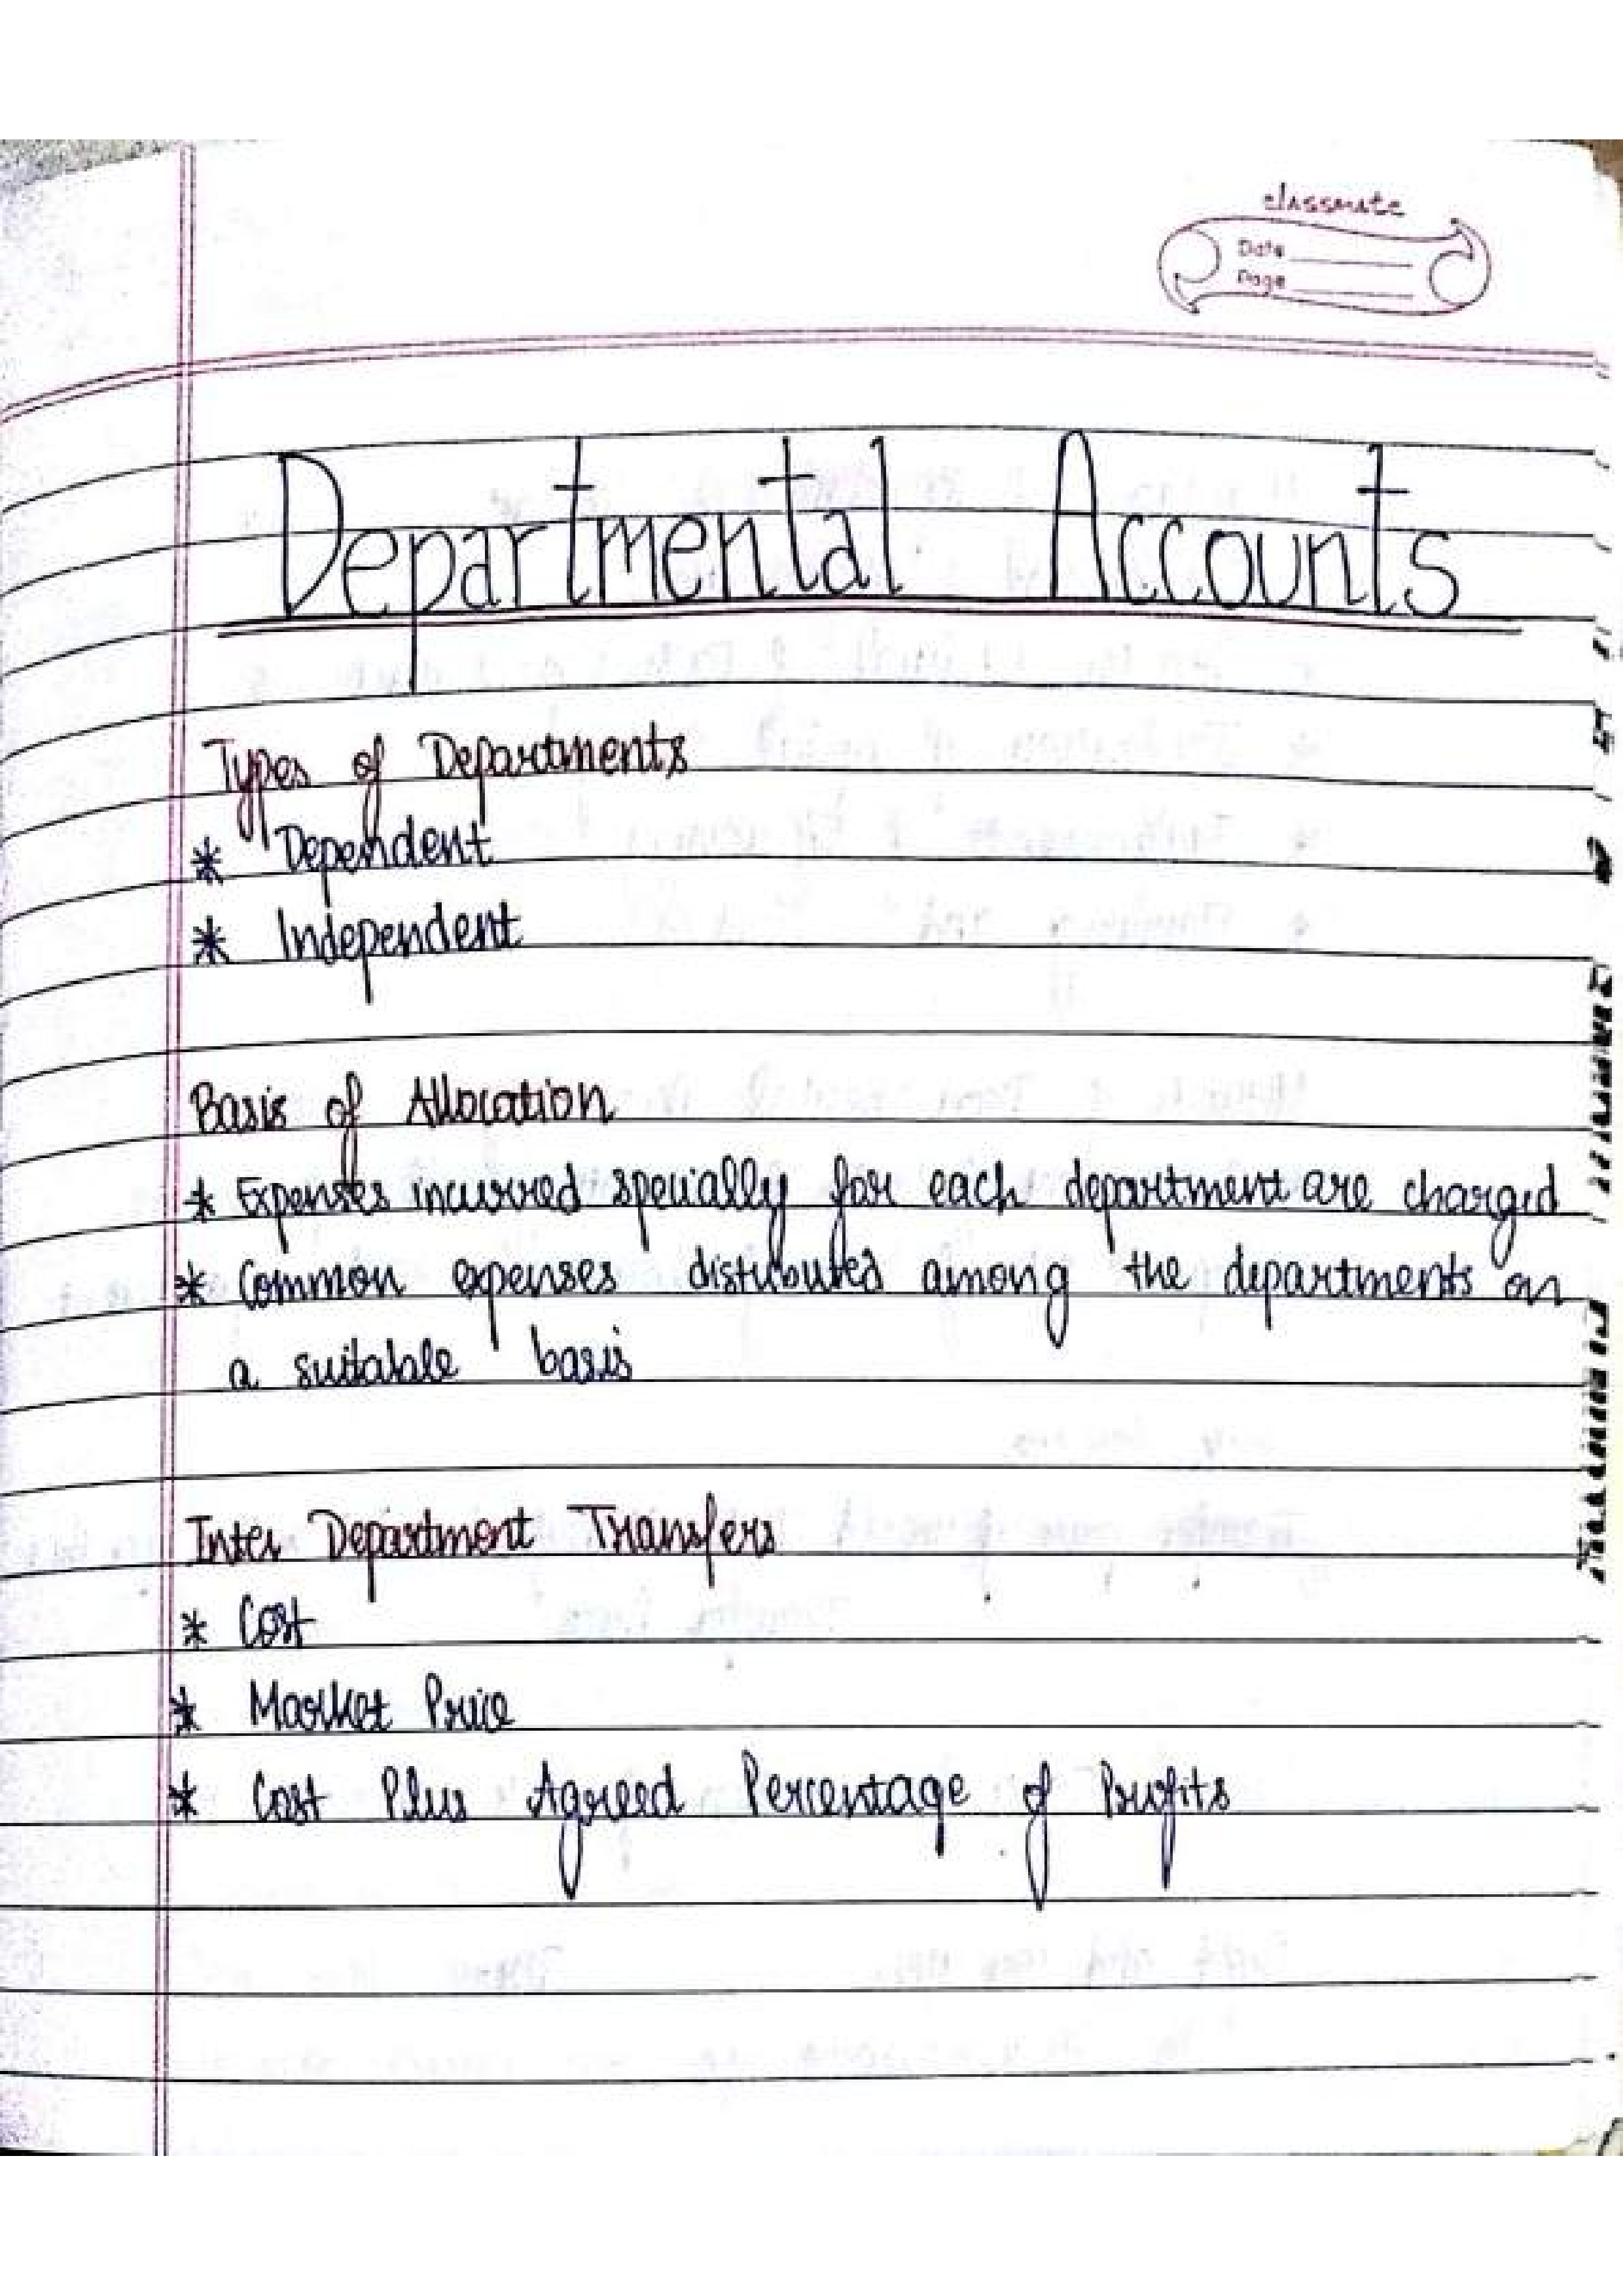 classmate
Date
Page
Departmental Accounts
Types of Departments
* Dependent
* Independent
Basis of Allocation
* Expenses incurred specially for each department are charged
* Common expenses distributed among the departments on
a suitable basis
Inter Department Transfers
* Cost
* Market Price
* Cost Plus Agreed Percentage of Profits